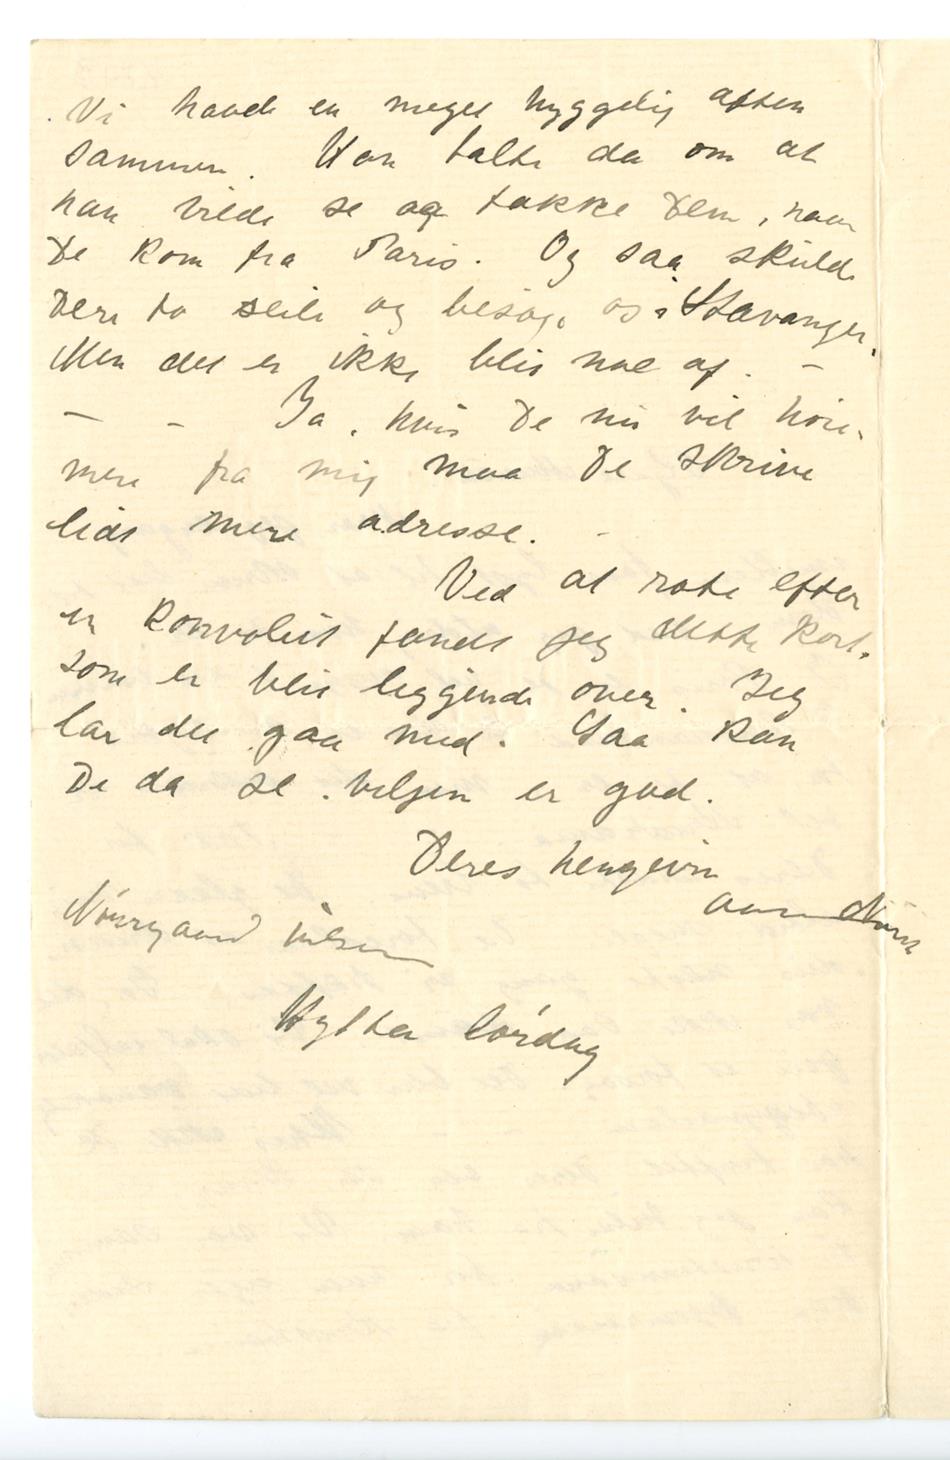 Vi havde en meget hyggelig aften
sammen. Han talte da om at
han vilde se og takke Dem, naar
De kom fra Paris. Og saa skulde
Dere to seile og besøge os i Stavanger.
Men det er ikke blit noe af. –
– – Ja, hvis De nu vil høre
mere fra mig maa De skrive
lidt mere adresse. –
Ved at rote efter
en Konvolut fandt jeg dette Kort.
som er blit liggende over. Jeg
lar det gaa med. Saa kan
De da se. viljen er god.
Deres hengivne
Nørregaard
Hytten Lördag